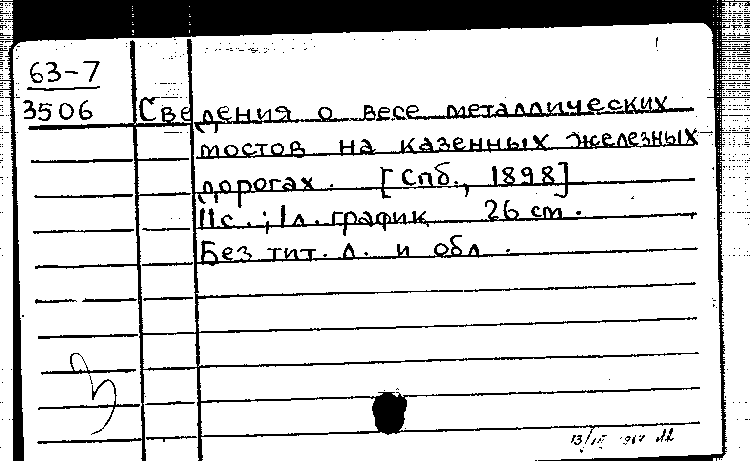 63-7
3506 Сведения о весе металлических
мостов на казенных железных
дорогах. [Спб., 1898]
11с.; 1л. график 26 см.
Без тит. л. и обл.